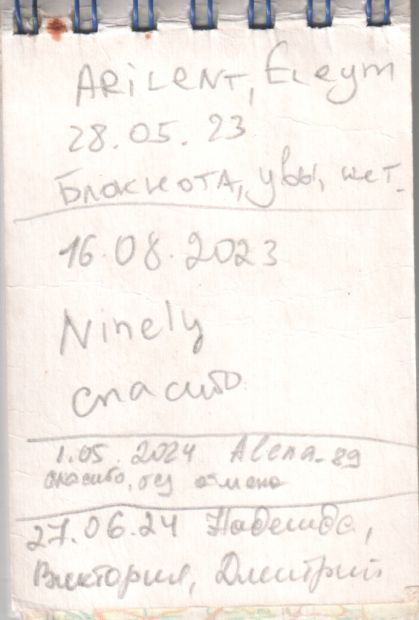 ARILENT, Eleym
28.05.23
Блокнота, увы, нет.
16.08.2023
Ninely
спасибо
1.05.2024 Alena-89
спасибо, без обмена
27.06.24 Надежда,
Виктория, Дмитрий